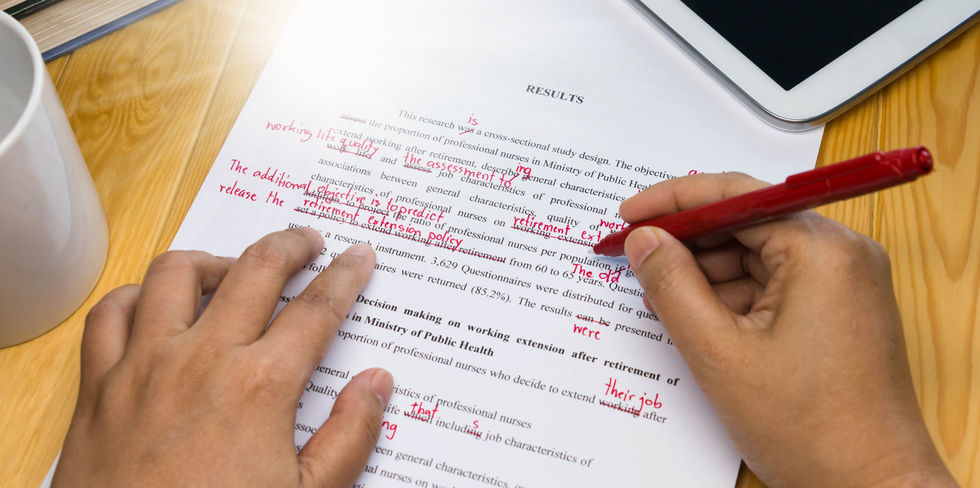 RESULTS
is
This research was a cross-sectional study design. The objective
assess the proportion of professional nurses in Ministry of Public Health
working life quality
extend working after retirement, describe general characteristics
ing
work life and assess job characteristics of professional
the assessment to
associations between general characteristics, quality of
The additional objective is to predict
characteristics of professional nurses on working extension
retirement ext work
addition, to project the ratio of professional nurses per population
release the retirement extension policy
set a policy to extend working after retirement from 60 to 65 years.
The old
a research instrument. 3,629 Questionnaires were distributed for
were returned (85.2%). The results can be presented
were
Decision making on working extension after retirement of
in Ministry of Public Health
proportion of professional nurses who decide to extend working after
their job
characteristics of professional nurses
that s
life which including job characteristics of
ng
general characteristics,
nurses on